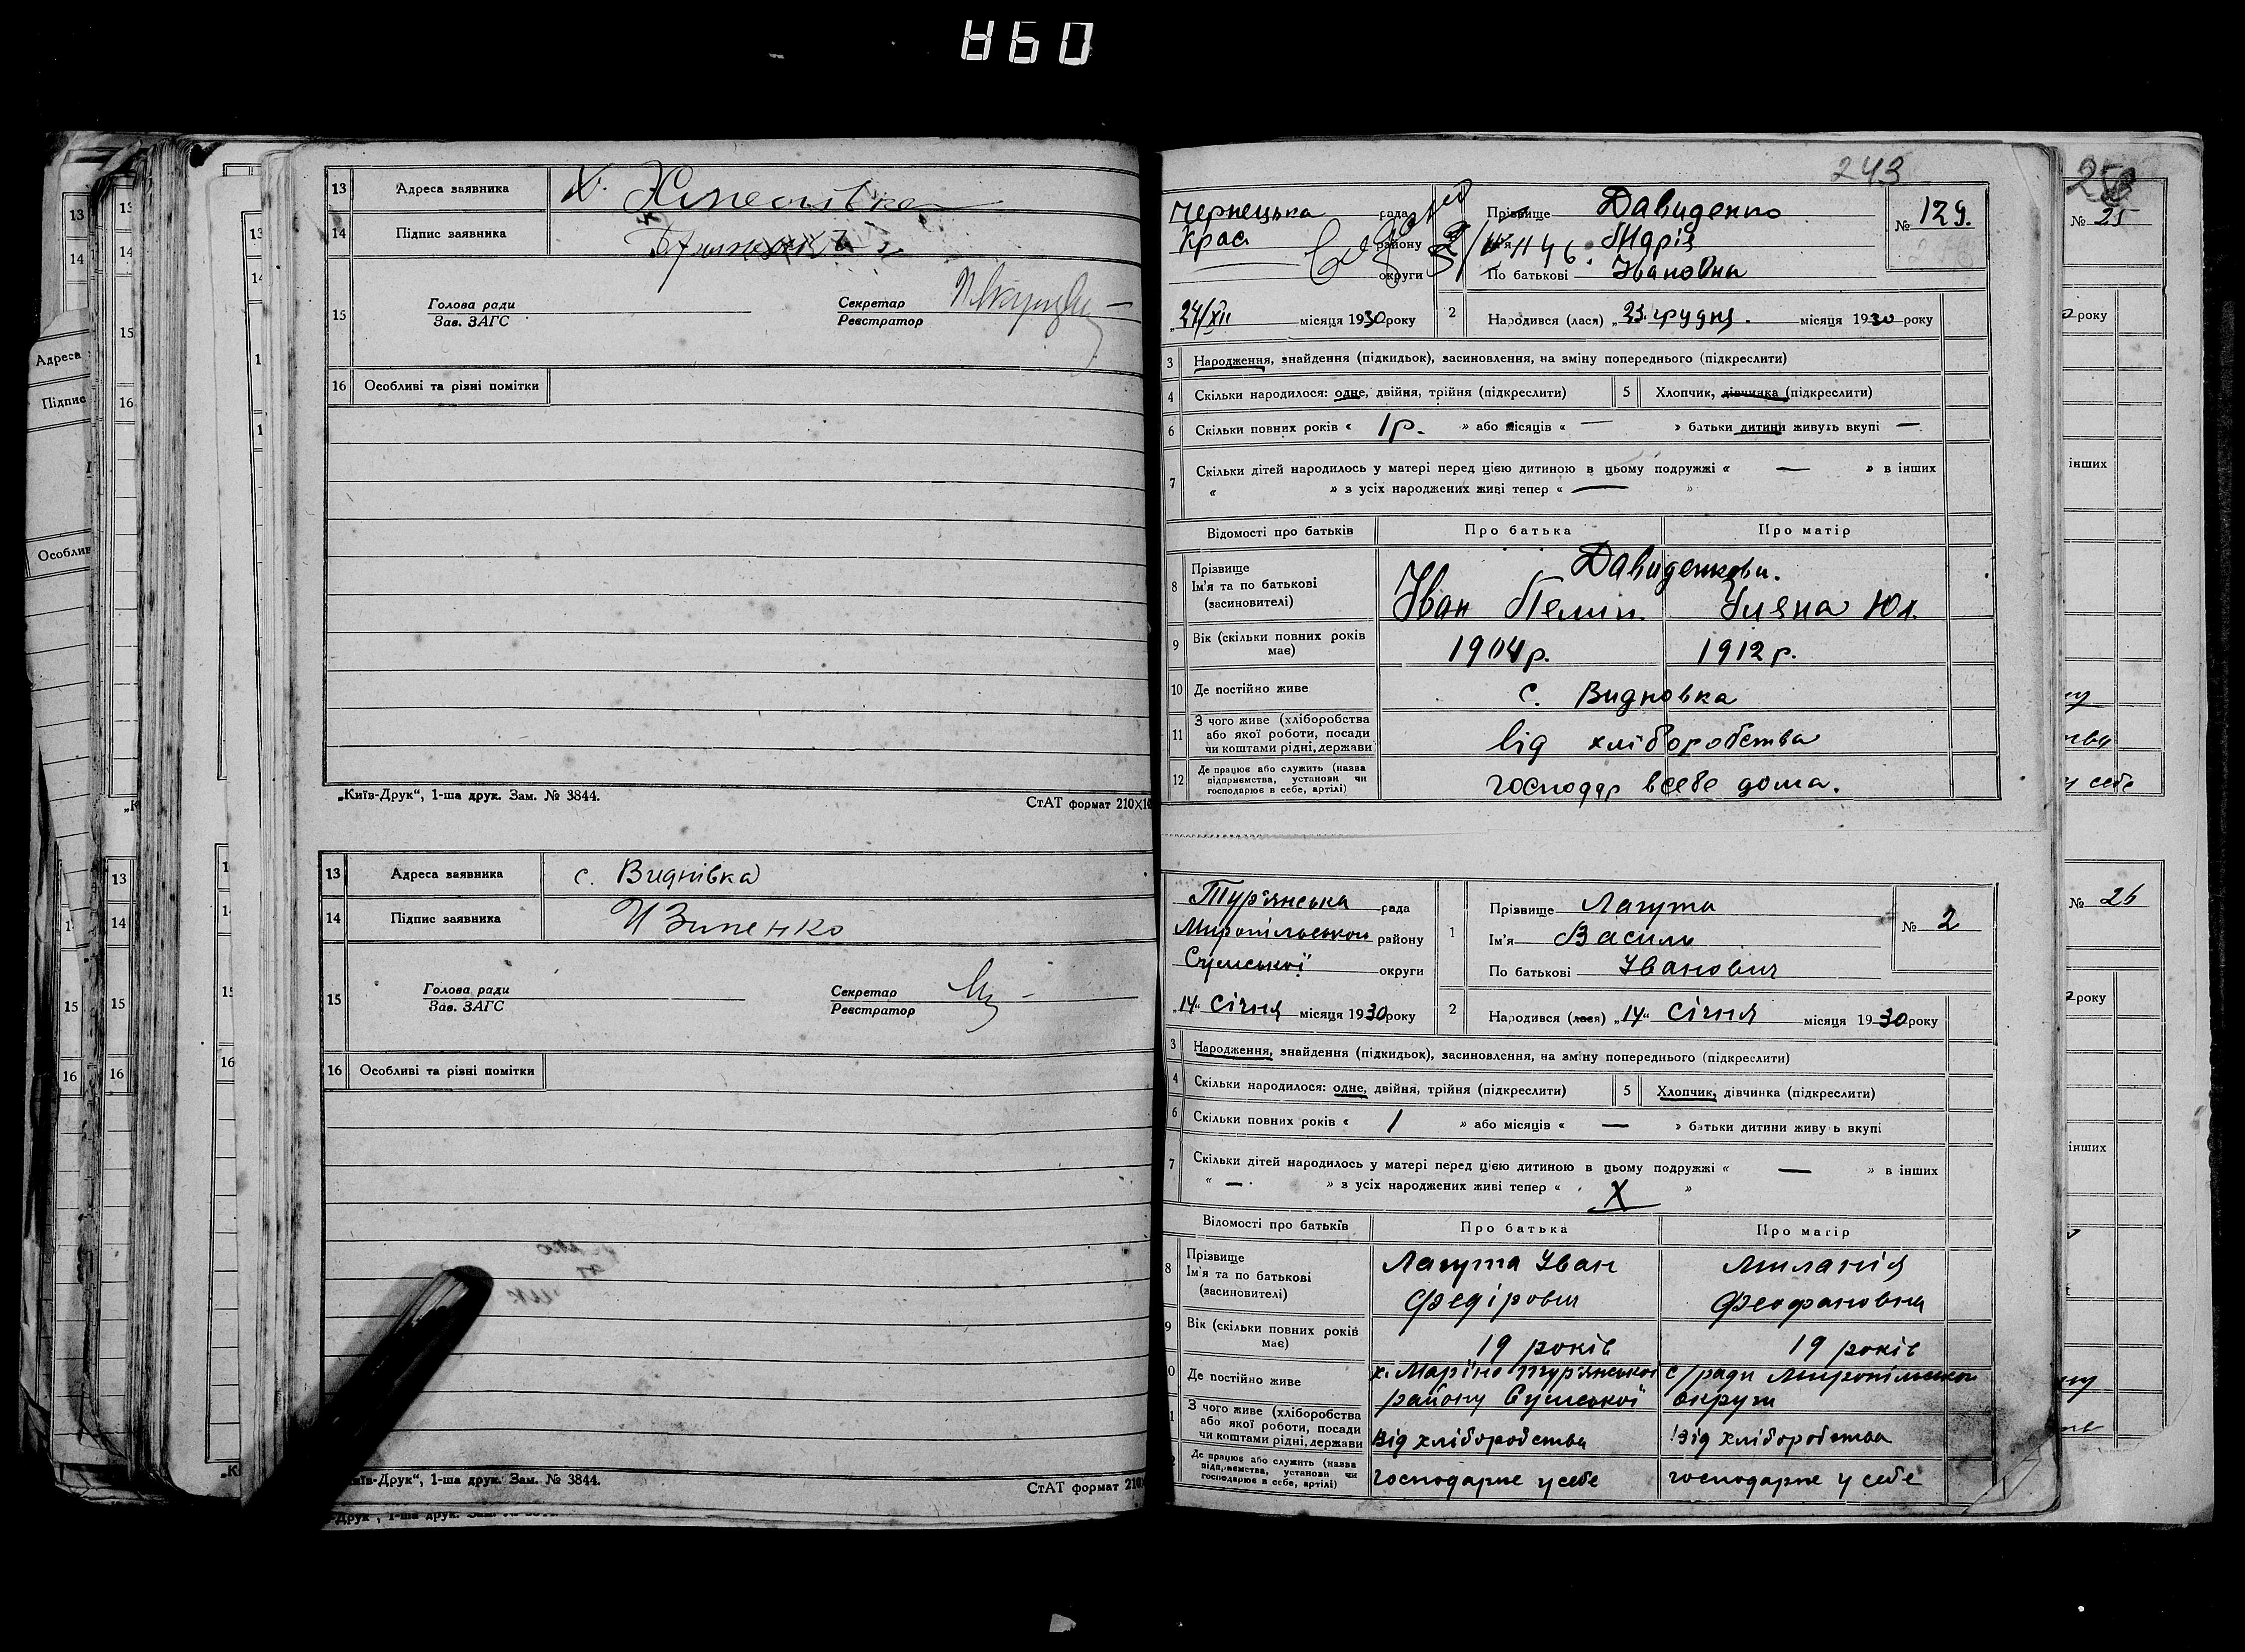 13 Адреса заявника
14 Підпис заявника
15
Голова ради Секретар
Зав. ЗАГС Реєстратор
16 Особливі та рівні помітки
„Київ-Друк“, 1-ша друк. Зам. № 3844. СтАТ формат 210×1
13 Адреса заявника с. Виднівка
14 Підпис заявника И Зименко
15
Голова ради Секретар
Зав. ЗАГС Реєстратор
16 Особливі та рівні помітки
Київ-Друк“, 1-ша друк. Зам. № 3844. СтАТ формат 210
243
Чернецька рада
Крас району
округи
„24/XII місяця 1930 року
Прізвище Давиденко
Мдрія
По батькові Івановна
№ 129.
2 Народився (лася) „23 грудня. місяця 1930 року
3 Народження, знайдення (підкидьок), засиновлення, на зміну попереднього (підкреслити)
4 Скільки народилося: одне, двійня, трійня (підкреслити) 5 Хлопчик, дівчинка (підкреслити)
6 Скільки повних років « 1р. » або місяців « — » батьки дитини живуть вкупі —
7 Скільки дітей народилось у матері перед цією дитиною в цьому подружжі « — » в інших
« » з усіх народжених живі тепер « — »
Відомості про батьків Про батька Про матір
8 Прізвище Ім'я та по батькові (засиновителі)
Давиденкови.
Іван Пелип. Уляна Юх.
9 Вік (скільки повних років має) 1904р. 1912р.
10 Де постійно живе с. Видновка
11 З чого живе (хліборобства або якої роботи, посади чи коштами рідні, держави) від хліборобства
12 Де працює або служить (назва підприємства, установи чи господарює в себе, артілі) господар всебе дома.
Тур'янська рада
Миропільської району
Сумської округи
„14“ Січня місяця 1930 року
1 Прізвище Лагута
Ім'я Василь
По батькові Іванович
№ 2
2 Народився (лася) „14“ Січня місяця 1930 року
3 Народження, знайдення (підкидьок), засиновлення, на зміну попереднього (підкреслити)
4 Скільки народилося: одне, двійня, трійня (підкреслити) 5 Хлопчик, дівчинка (підкреслити)
6 Скільки повних років « 1 » або місяців « — » батьки дитини живу ь вкупі
7 Скільки дітей народилось у матері перед цією дитиною в цьому подружжі « — » в інших
« — » з усіх народжених живі тепер « X »
Відомості про батьків Про батька Про матір
8 Прізвище Ім'я та по батькові (засиновителі)
Лагута Іван Миланія
Федірович Феофановна
9 Вік (скільки повних років має) 19 років 19 років
Де постійно живе х. Мар'їно Тур'янської с/ради Миропільської
району Сумської округи
З чого живе (хліборобства або якої роботи, посади чи коштами рідні, держави Від хліборобства Від хліборобства
Де працює або служить (назва підприємства, установи чи господарює в себе, артілі) господарне у себе господарне у себе
№ 25
року
інших
у себе
№ 26
року
інших